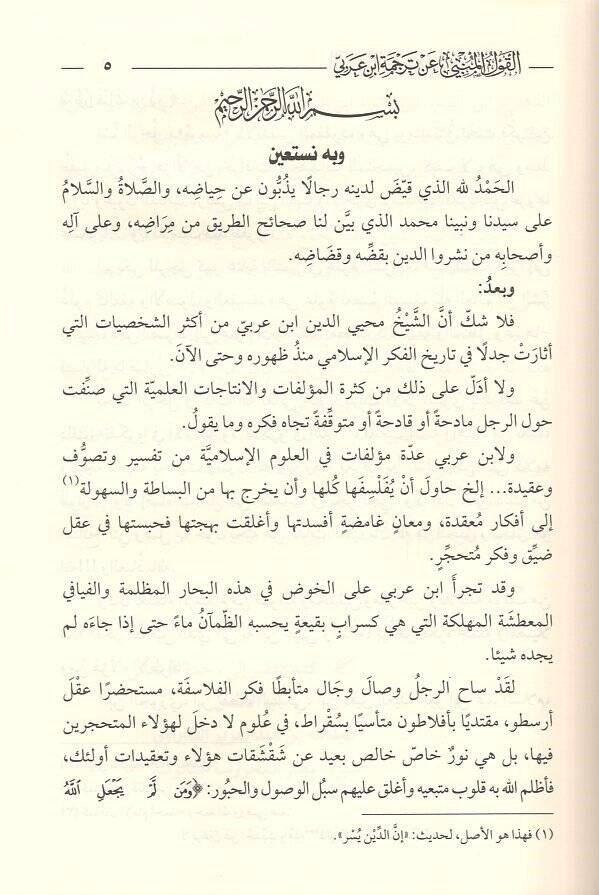 القَوْلُ المُنْبِي عَنْ تَرْجَمَةِ ابْنِ عَرَبي ٥
بِسْمِ اللَّهِ الرَّحْمَنِ الرَّحِيمِ
وبه نستعين
الحَمْدُ لله الذي قيّضَ لدينه رجالًا يذُبُّون عن حِياضِه، والصَّلاةُ والسَّلامُ
على سيدنا ونبينا محمد الذي بيَّن لنا صحائح الطريق من مِرَاضِه، وعلى آلِه
وأصحابِه من نشروا الدين بقضِّه وقضَاضِه.
وبعدُ:
فلا شكّ أنَّ الشَّيْخُ محيي الدين ابن عربيّ من أكثر الشخصيات التي
أثارَتْ جدلًا في تاريخ الفكر الإسلامي منذُ ظهوره وحتى الآنَ.
ولا أدَلّ على ذلك من كثرة المؤلفات والانتاجات العلميّة التي صنِّفت
حول الرجل مادحةً أو قادحةً أو متوقِّفةً تجاه فكره وما يقولُ.
ولابن عربي عدّة مؤلفات في العلوم الإسلاميَّة من تفسير وتصوُّف
وعقيدة... إلخ حاولَ أنْ يُفَلْسِفَها كُلها وأن يخرج بها من البساطة والسهولة(١)
إلى أفكار مُعقدة، ومعانٍ غامضةٍ أفسدتها وأغلقت بهجتها فحبستها في عقل
ضيِّق وفكر مُتحجِّرٍ.
وقد تجرأَ ابن عربي على الخوض في هذه البحار المظلمة والفيافي
المعطشَة المهلكة التي هي كسرابٍ بقيعةٍ يحسبه الظّمآنُ ماءً حتى إذا جاءَه لم
يجده شيئا.
لقَدْ ساح الرجلُ وصالَ وجَال متأبطًا فكر الفلاسفَة، مستحضرًا عقْلَ
أرسطو، مقتديًا بأفلاطون متأسيًا بسُقْراط، في عُلوم لا دخلَ لهؤلاء المتحجرين
فيها، بل هي نورٌ خاصّ خالص بعيد عن شَقْشَقات هؤلاء وتعقيدات أولئك،
فأظلم الله به قلوب متبعيه وأغلق عليهم سبُل الوصول والحبُور: ﴿وَمَن لَّمْ يَجْعَلِ ٱللَّهُ
(١) فهذا هو الأصل، لحديث: «إنَّ الدِّيْن يُسْر».